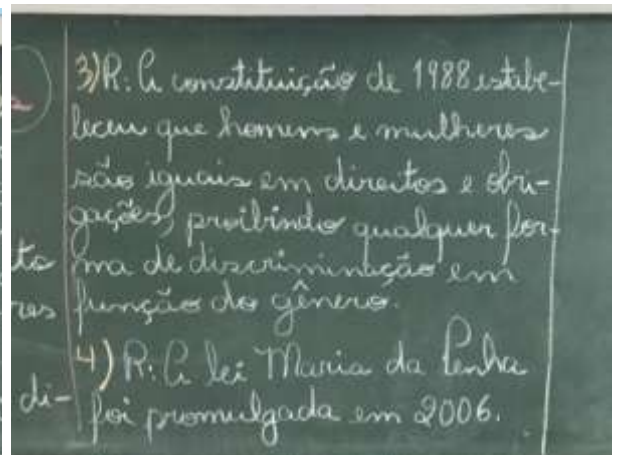 3) R: A constituição de 1988 estabe-
leceu que homens e mulheres
são iguais em direitos e obri-
gações, proibindo qualquer for-
ma de discriminação em
função do gênero.
4) R: A lei Maria da Penha
foi promulgada em 2006.
to
res
di-